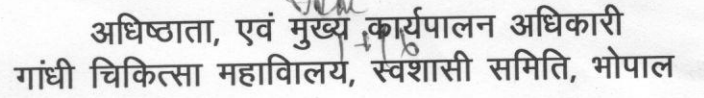 अधिष्ठाता, एवं मुख्य कार्यपालन अधिकारी
गांधी चिकित्सा महाविालय, स्वशासी समिति, भोपाल